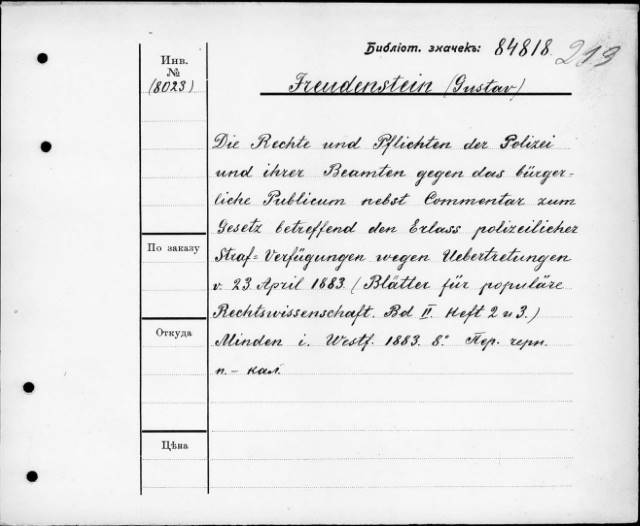 Библіот. значекъ: 84818
213
Инв.
№
(8023)
Freudenstein (Gustav)
Die Rechte und Pflichten der Polizei
und ihrer Beamten gegen das bürger-
liche Publicum nebst Commentar zum
Gesetz betreffend den Erlass polizeilicher
Straf=Verfügungen wegen Uebertretungen
v. 23 April 1883. (Blätter für populäre
Rechtswissenschaft. Bd II. Heft 2 u 3.)
Minden i. Westf. 1883. 8º Пер. черн.
п. - кал.
По заказу
Откуда
Цѣна